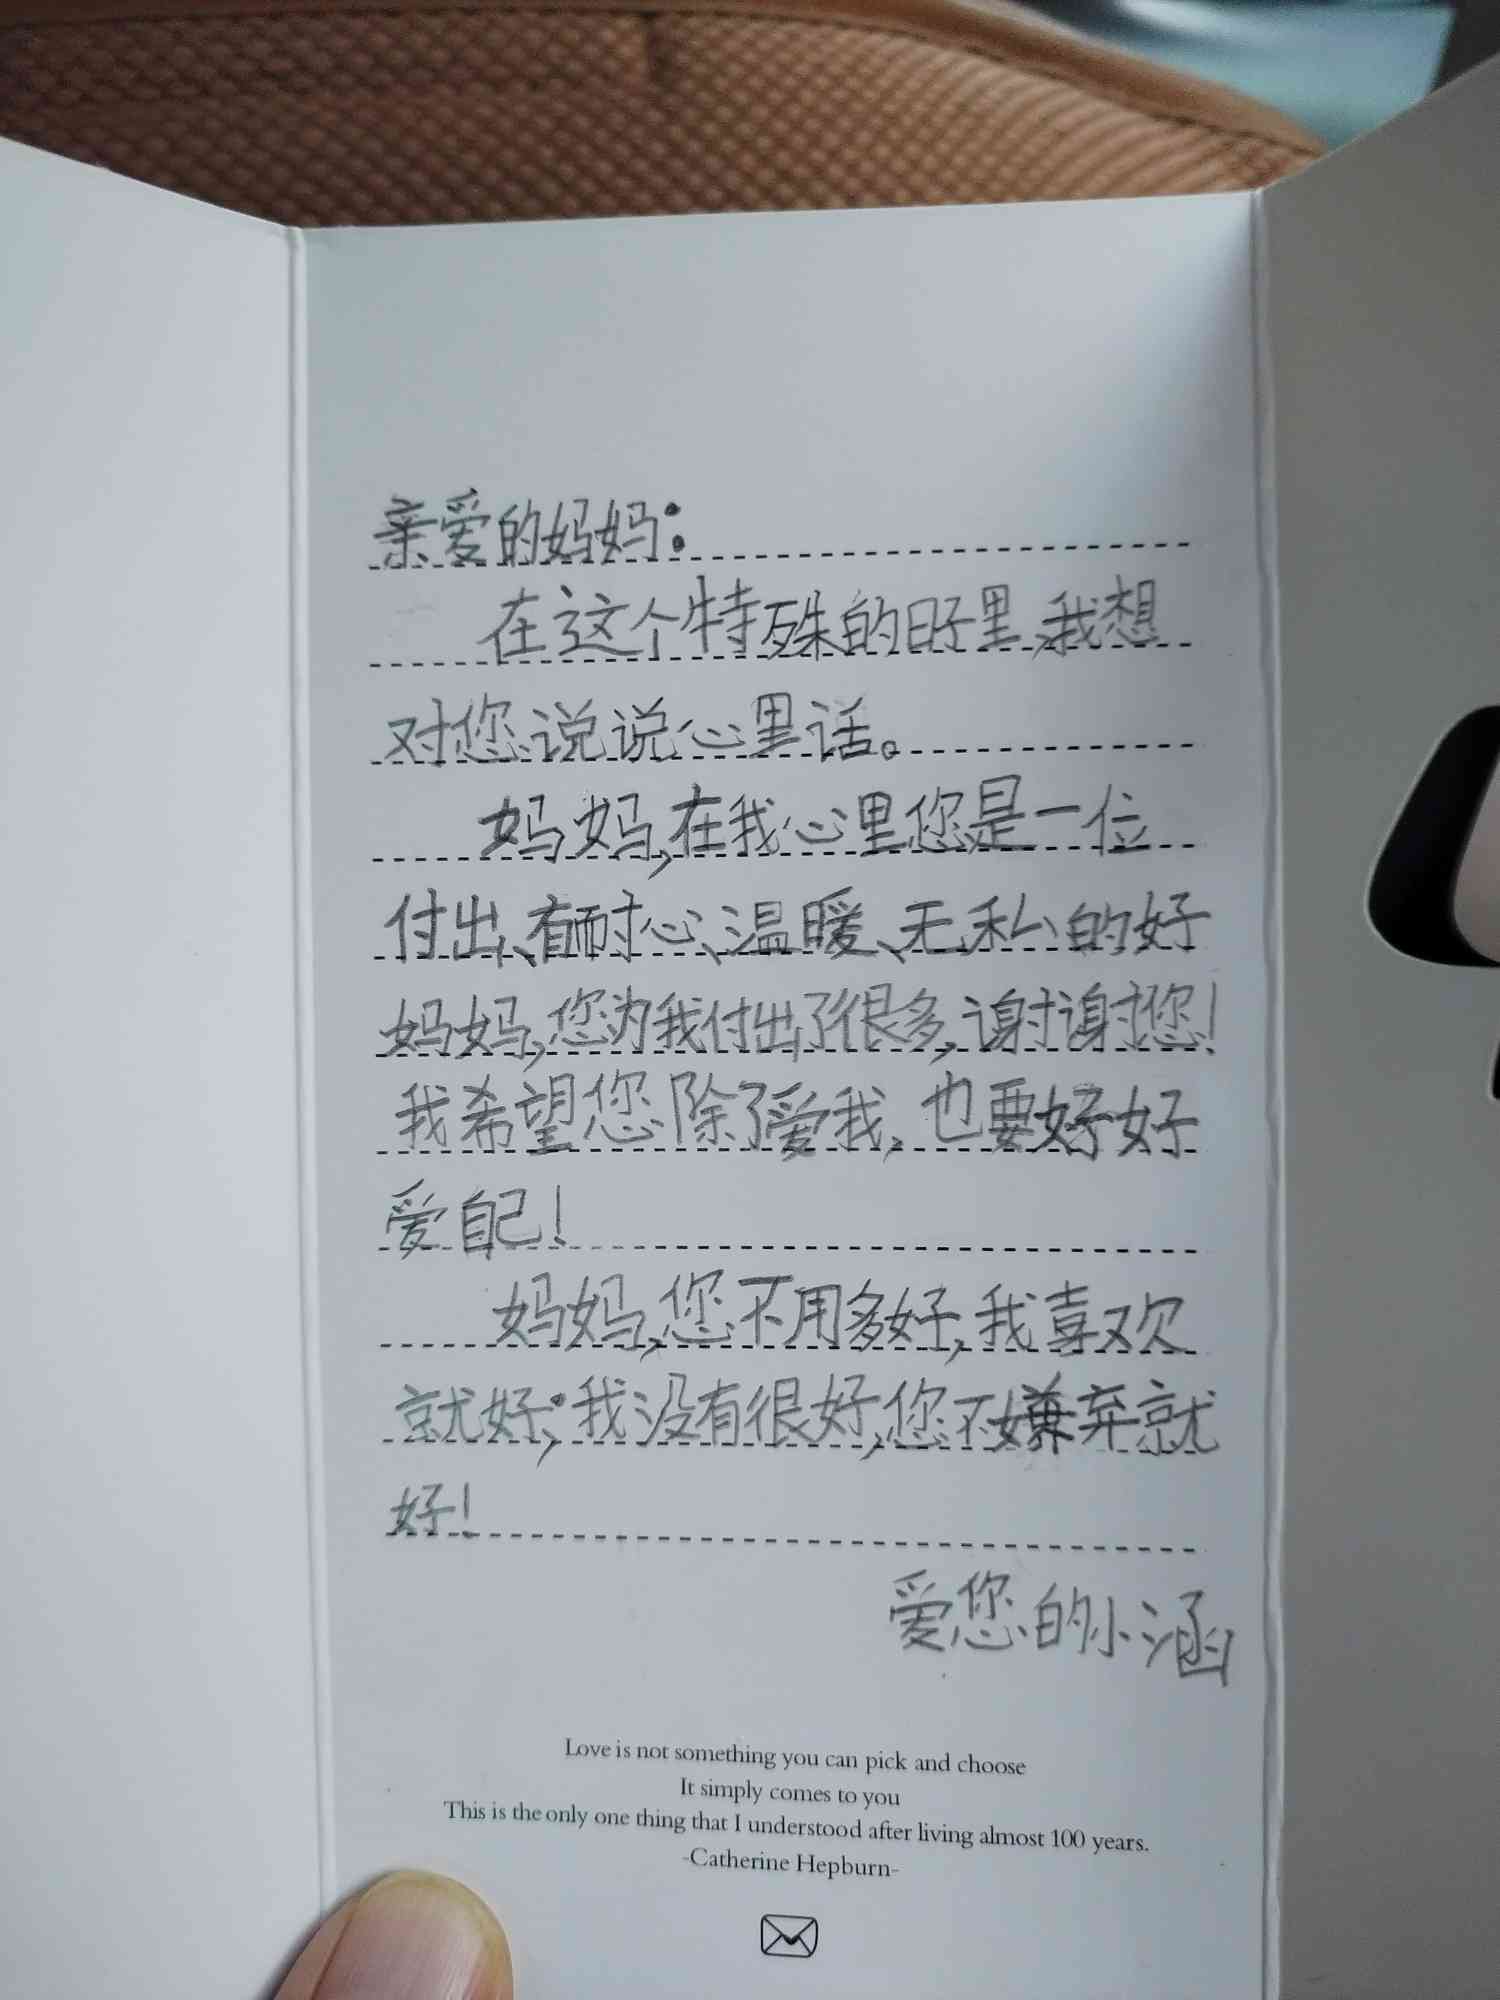 亲爱的妈妈：
在这个特殊的日子里，我想
对您说说心里话。
妈妈，在我心里您是一位
付出、有耐心、温暖、无私的好
妈妈，您为我付出了很多，谢谢您！
我希望您除了爱我，也要好好
爱自己！
妈妈，您不用多好，我喜欢
就好；我没有很好，您不嫌弃就
好！
爱您的小涵
Love is not something you can pick and choose
It simply comes to you
This is the only one thing that I understood after living almost 100 years.
-Catherine Hepburn-